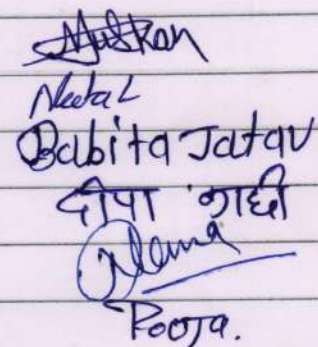 Muskan
Neetal
Babita Jatav
दीपा काछी
Pooja.